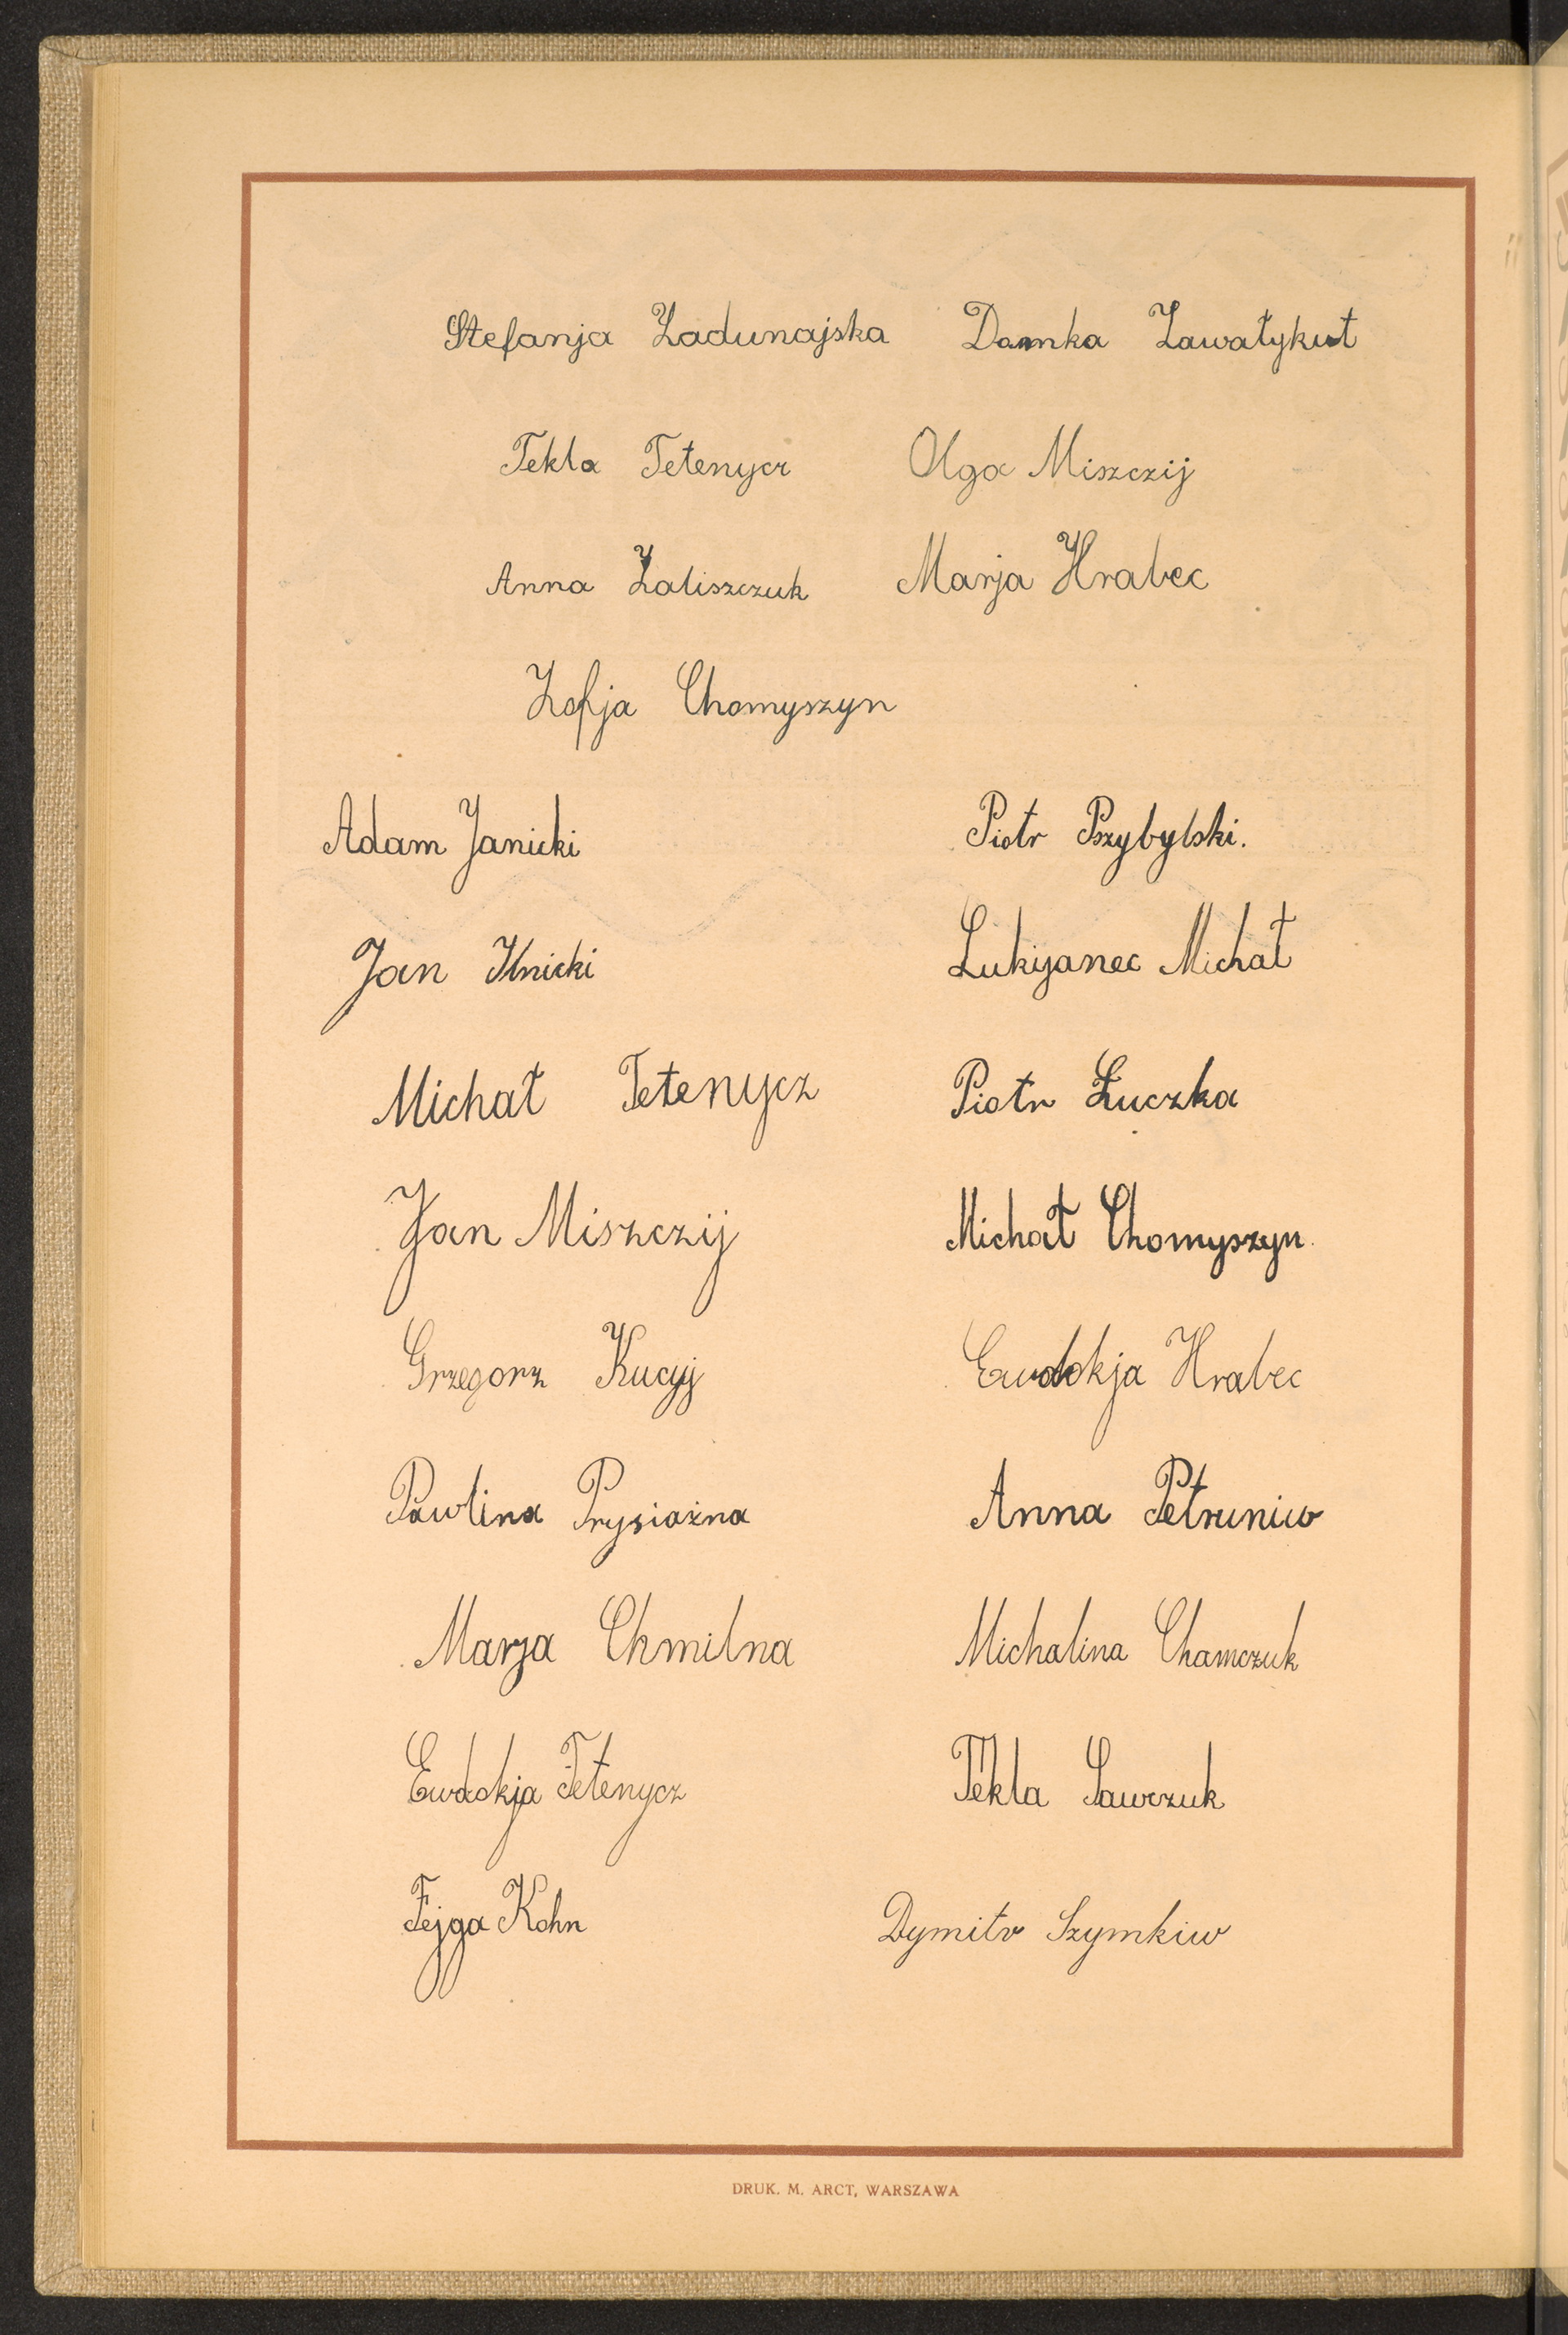 Stefanja Zadunajska Damka Zawałykut
Tekla Tetenycz Olga Miszczij
Anna Zaliszczuk Marja Hrabec
Zofja Chomyszyn
Adam Janicki Piotr Pszybylski.
Jan Ilnicki Lukijanec Michał
Michał Tetenycz Piotr Łuczka
Jan Miszczij Michał Chomyszyn.
Grzegorz Kucyj Ewdokja Hrabec
Pawlina Prysiażna Anna Petruniw
Marja Chmilna Michalina Chamczuk
Ewdokja Tetenycz Tekla Sawczuk
Fejga Kohn Dymitr Szymkiw
DRUK. M. ARCT, WARSZAWA